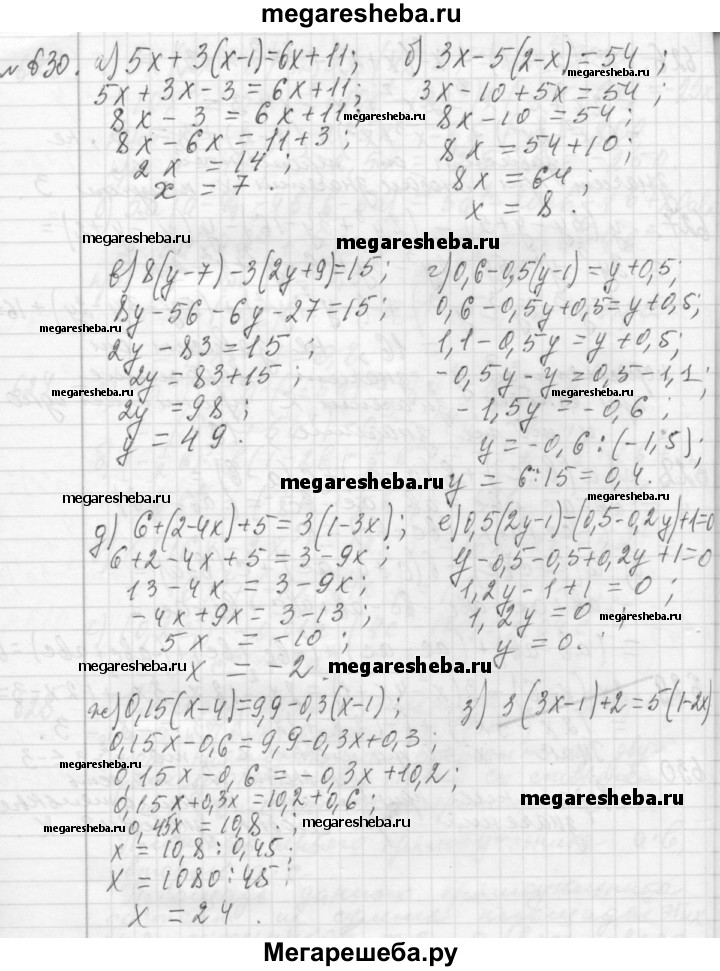 megaresheba.ru
№ 630. а) 5x + 3(x-1)=6x+11; б) 3x-5(2-x)=54;
megaresheba.ru
5x+3x-3=6x+11; 3x-10+5x=54;
8x-3=6x+11; 8x-10=54;
megaresheba.ru
8x-6x=11+3; 8x=54+10;
2x=14; 8x=64;
x=7. x=8.
megaresheba.ru megaresheba.ru
в) 8(y-7)-3(2y+9)=15; г) 0,6-0,5(y-1)=y+0,5;
8y-56-6y-27=15; 0,6-0,5y+0,5=y+0,5;
megaresheba.ru
2y-83=15; 1,1-0,5y=y+0,5;
2y=83+15; -0,5y-y=0,5-1,1;
megaresheba.ru megaresheba.ru
2y=98; -1,5y=-0,6;
y=49. y=-0,6:(-1,5);
megaresheba.ru y=6:15=0,4.
megaresheba.ru megaresheba.ru
д) 6+(2-4x)+5=3(1-3x); е) 0,5(2y-1)-(0,5-0,2y)+1=0
6+2-4x+5=3-9x; y-0,5-0,5+0,2y+1=0
13-4x=3-9x; 1,2y-1+1=0;
-4x+9x=3-13; 1,2y=0;
megaresheba.ru
5x=-10; y=0.
megaresheba.ru x=-2. megaresheba.ru
ж) 0,15(x-4)=9,9-0,3(x-1); з) 3(3x-1)+2=5(1-2x)
0,15x-0,6=9,9-0,3x+0,3;
megaresheba.ru
0,15x-0,6=-0,3x+10,2;
0,15x+0,3x=10,2+0,6; megaresheba.ru
megaresheba.ru 0,45x=10,8; megaresheba.ru
x=10,8:0,45;
x=1080:45;
x=24.
Мегарешеба.ру